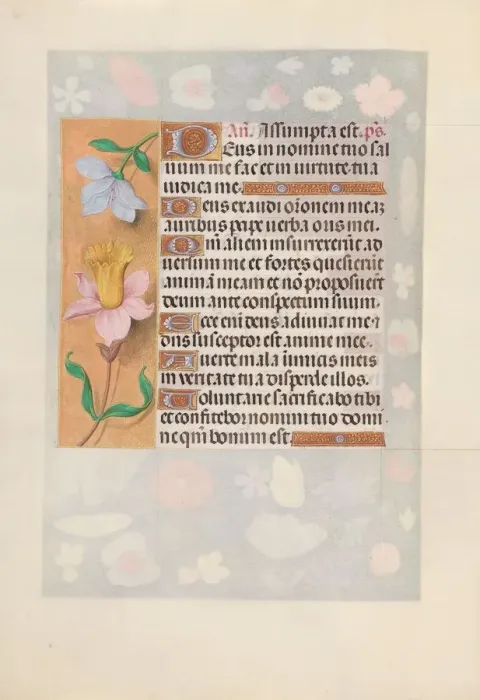 Añ. Assumpta est. ps.
Deus in nomine tuo sal
uum me fac et in uirtute tua
iudica me.
Deus exaudi orõnem meaʒ
auribus pcipe uerba oris mei.
Qm̃ alieni insurrexerũt ad
uersum me et fortes quesierũt
animã meam et nõ proposuerũt
deum ante conspectum suum.
Ecce eni deus adiuuat me ⁊
dñs susceptor est anime mee.
Auerte mala inimicis meis
in veritate tua disperde illos.
Voluntarie sacrificabo tibi
et confitebor nomini tuo domi
ne qm̃ bonum est.